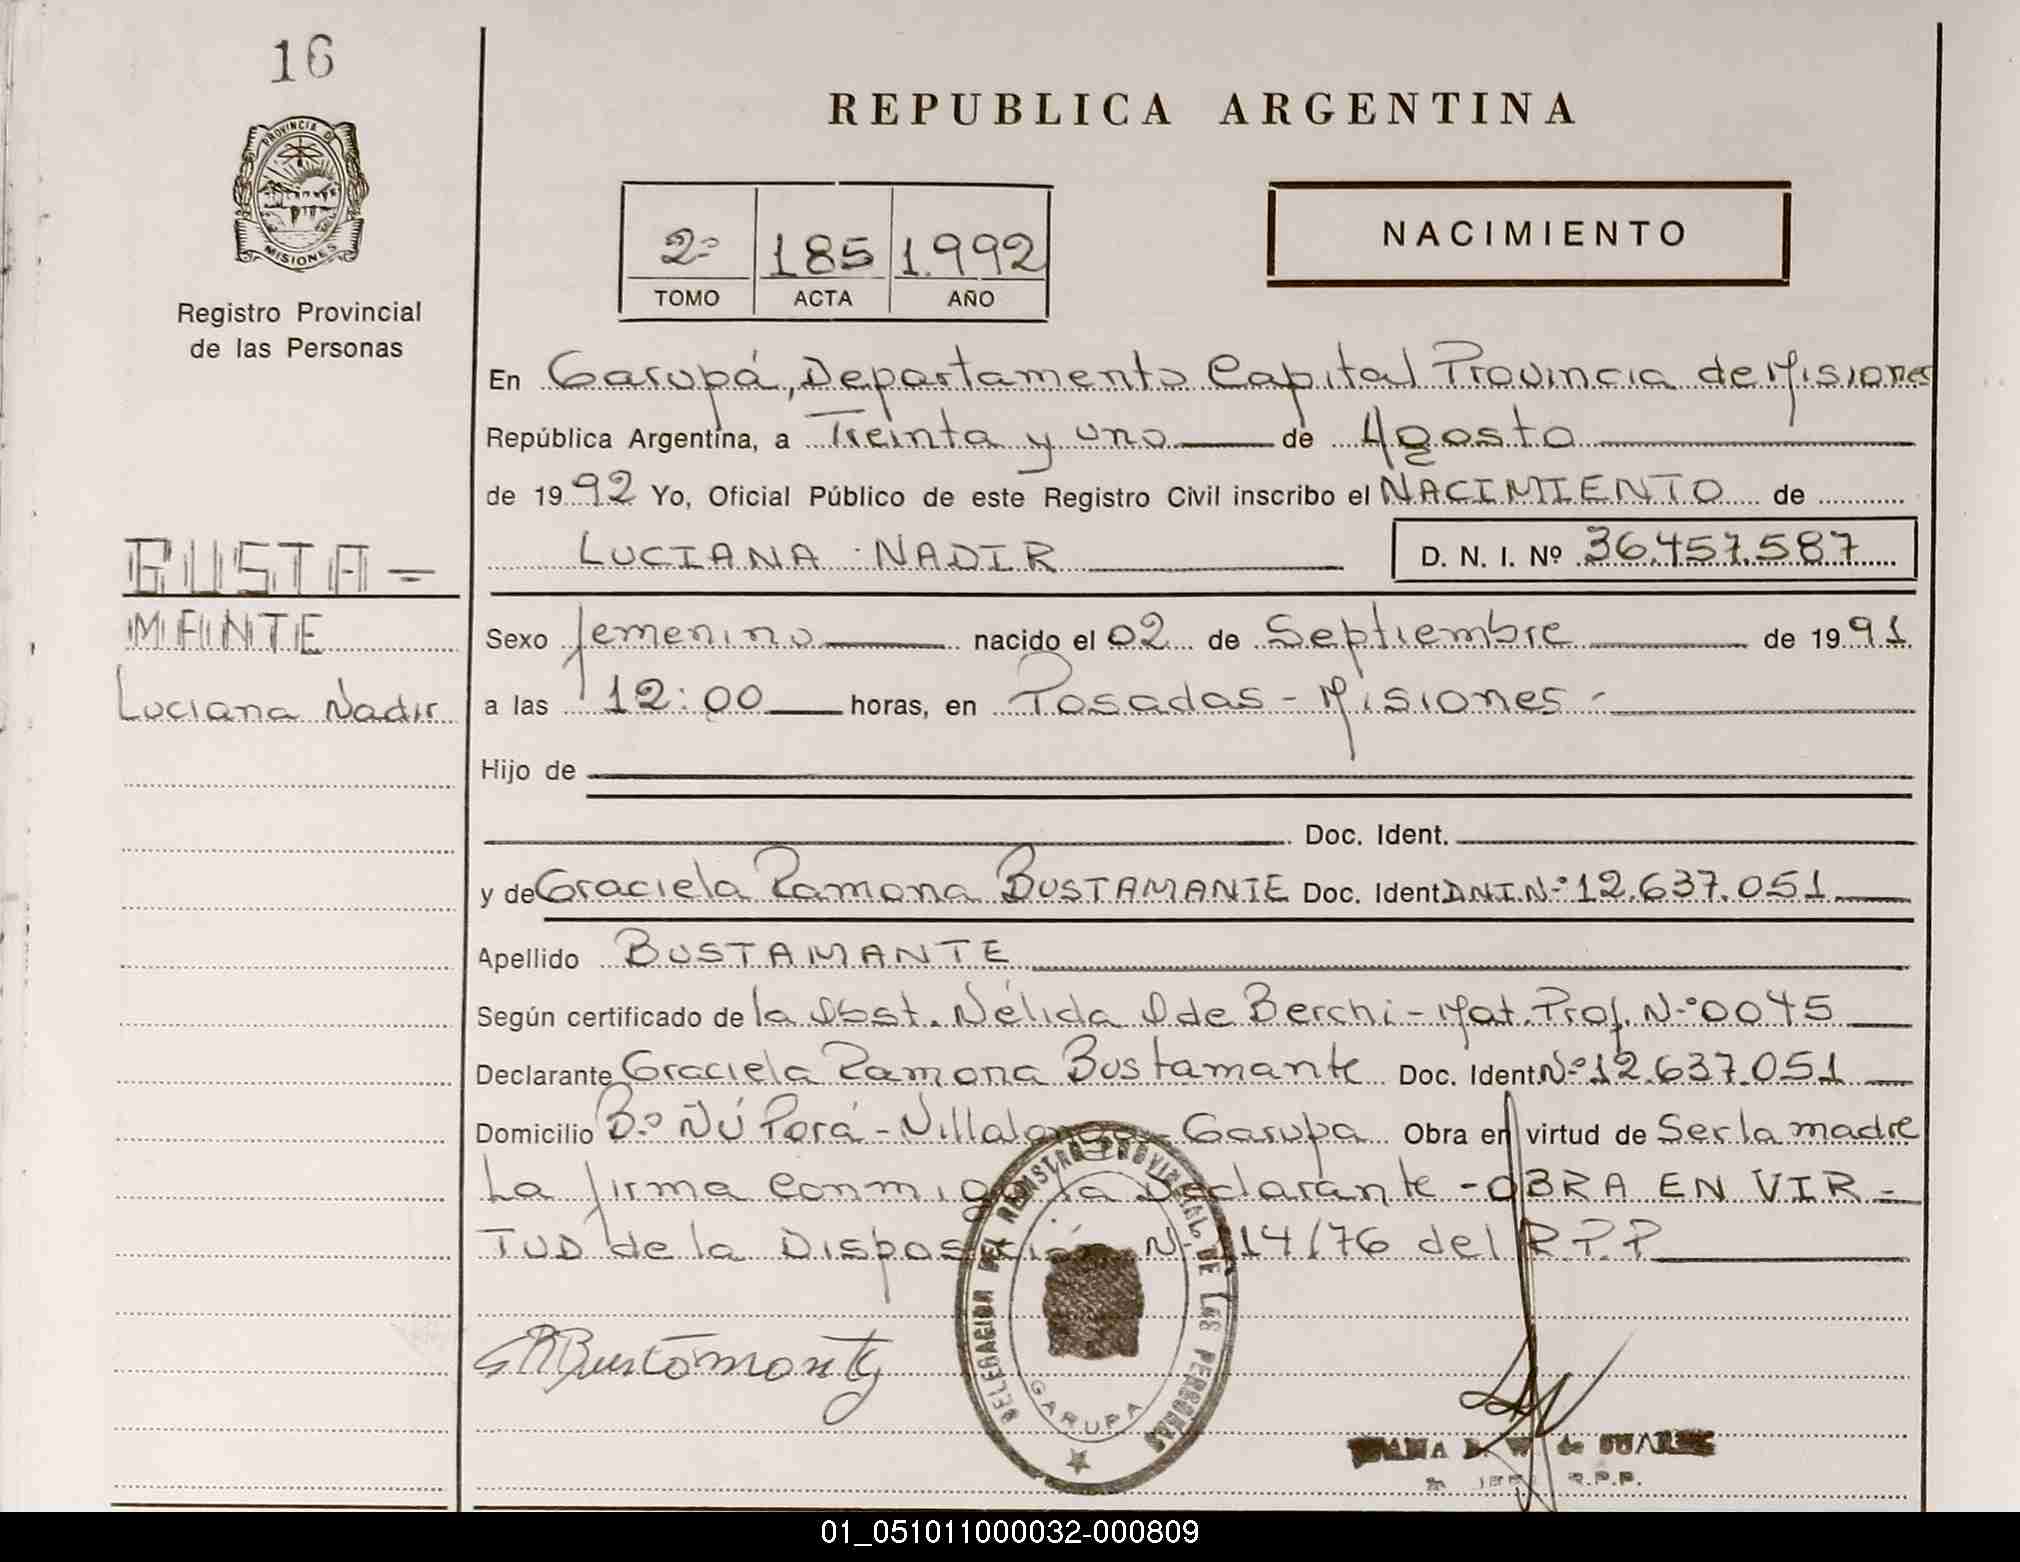 16
PROVINCIA DE
MISIONES
Registro Provincial
de las Personas
BUSTA-
MANTE
Luciana Nadir
REPUBLICA ARGENTINA
2º 185 1.992
TOMO ACTA AÑO
NACIMIENTO
En Garupá, Departamento Capital Provincia de Misiones
República Argentina, a Treinta y uno de Agosto
de 1992 Yo, Oficial Público de este Registro Civil inscribo el NACIMIENTO de
LUCIANA NADIR D. N. I. Nº 36.457.587
Sexo femenino nacido el 02 de Septiembre de 1991
a las 12:00 horas, en Posadas - Misiones -
Hijo de
Doc. Ident.
y de Graciela Ramona BUSTAMANTE Doc. Ident. D.N.I. Nº 12.637.051
Apellido BUSTAMANTE
Según certificado de la Obst. Nélida O de Berchi - Mat. Prof. Nº 0045
Declarante Graciela Ramona Bustamante Doc. Ident Nº 12.637.051
Domicilio Bº Ñú Porá - Villalonga - Garupa Obra en virtud de Ser la madre
La firma conmigo la Declarante - OBRA EN VIR-
TUD de la Disposición Nº 114/76 del R.P.P
GRBustamante
DELEGACION DEL REGISTRO PROVINCIAL DE LAS PERSONAS
GARUPA
de SUAREZ
R.P.P.
01_051011000032-000809